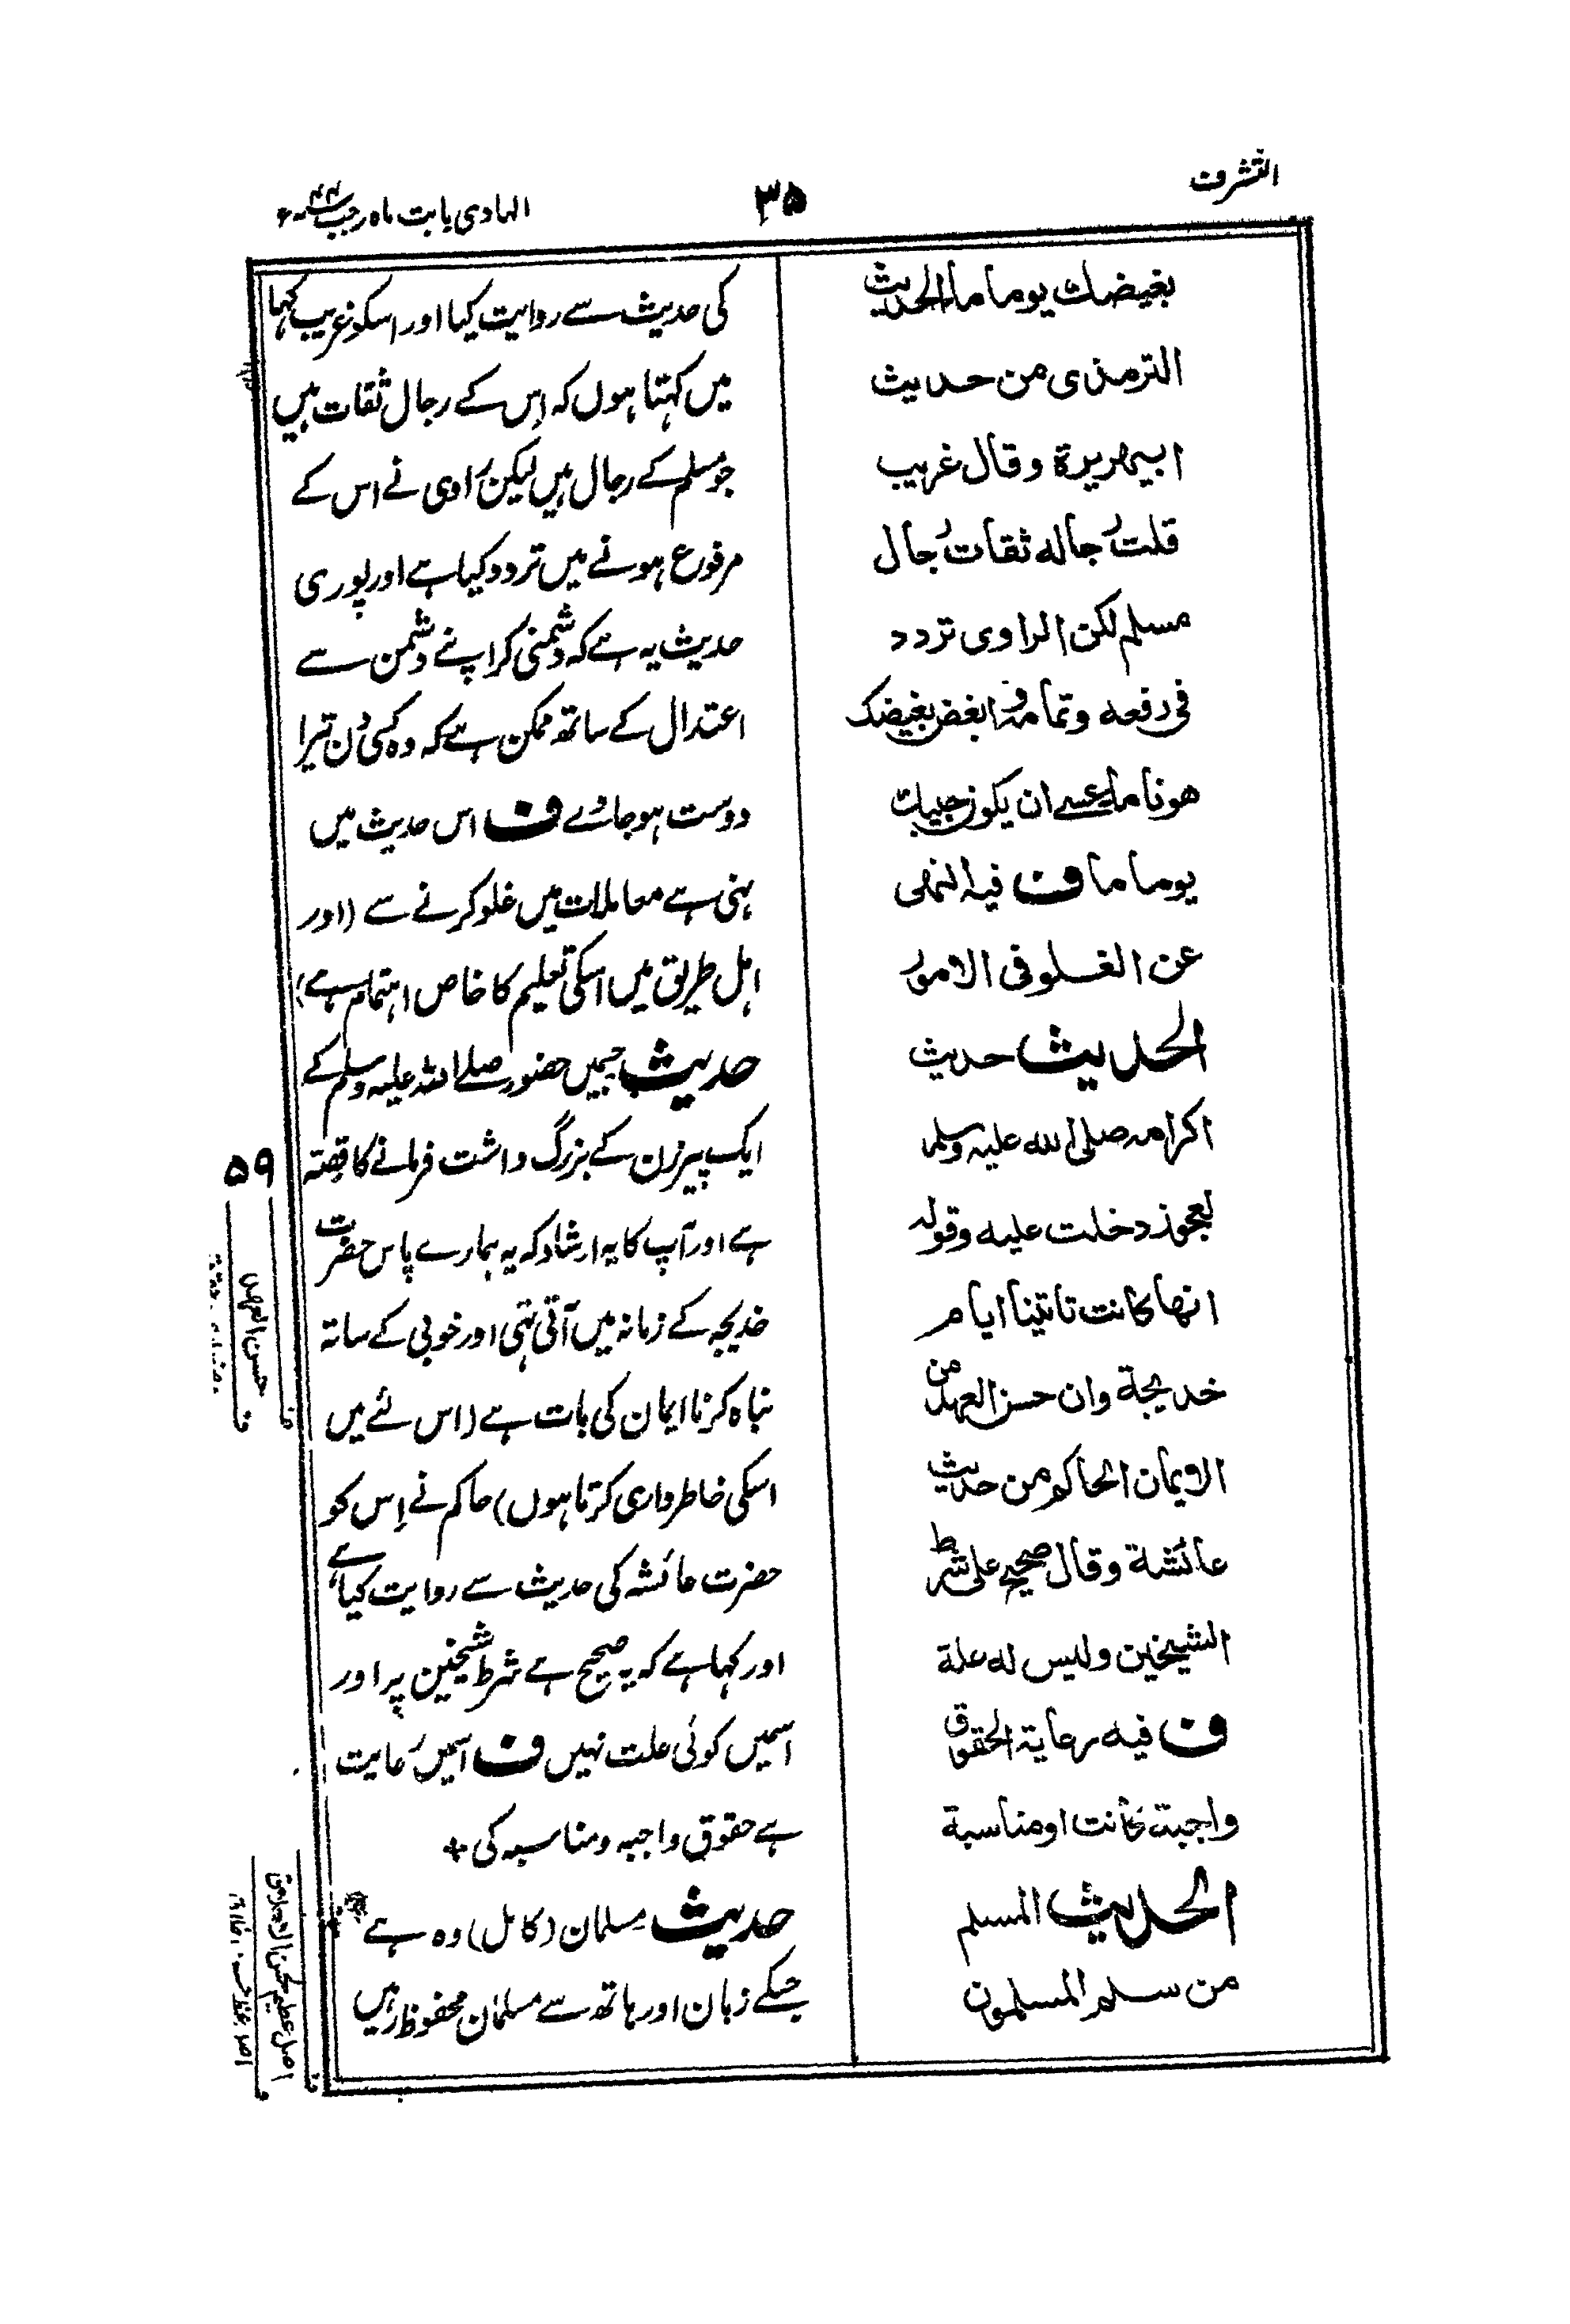 التشرف
۳۵
الہادی بابت ماہ رجب
بغیضك یوما ما الحدیث
الترمذی من حدیث
ابیهریرة وقال غریب
قلت رجاله ثقات رجال
مسلم لکن الراوی تردد
فی رفعه وتمامه وابغض بغیضك
هونا ما عسے ان یکون حبیبك
یوما ما ف فیه النهی
عن الغلو فی الامور
الحدیث حدیث
اکرامه صلی الله علیه وسلم
لعجوز دخلت علیه وقوله
انها کانت تاتینا ایام
خدیجة وان حسن العهد من
الایمان الحاکم من حدیث
عائشة وقال صحیح علی شرط
الشیخین ولیس له علة
ف فیه رعایة الحقوق
واجبة کانت او مناسبة
الحدیث المسلم
من سلم المسلمون
کی حدیث سے روایت کیا اور اسکو غریب کہا
میں کہتا ہوں کہ اِس کے رجال ثقات ہیں
جو مسلم کے رجال ہیں لیکن راوی نے اس کے
مرفوع ہونے میں تردد کیا ہے اور پوری
حدیث یہ ہے کہ دشمنی کر اپنے دشمن سے
اعتدال کے ساتھ ممکن ہے کہ وہ کسی دن تیرا
دوست ہو جاوے ف اس حدیث میں
نہی ہے معاملات میں غلو کرنے سے (اور
اہل طریق میں اسکی تعلیم کا خاص اہتمام ہے)
حدیث جسمیں حضور صلے اللہ علیہ وسلم کے
ایک پیرزن کے بزرگ داشت فرمانے کا قصّہ
ہے اور آپ کا یہ ارشاد کہ یہ ہمارے پاس حضرت
خدیجہ کے زمانہ میں آتی تہی اور خوبی کے ساتہ
نباہ کرنا ایمان کی بات ہے (اس لئے میں
اسکی خاطرداری کرتا ہوں) حاکم نے اِس کو
حضرت عائشہ کی حدیث سے روایت کیا ہے
اور کہا ہے کہ یہ صحیح ہے شرط شیخین پر اور
اسمیں کوئی علت نہیں ف اسمیں رعایت
ہے حقوق واجبہ ومناسبہ کی +
حدیث مسلمان (کامل) وہ ہے
جسکے زبان اور ہاتھ سے مسلمان محفوظ رہیں
۵۹
حسن العهد
اصل عظیم لحسن المعاشرۃ